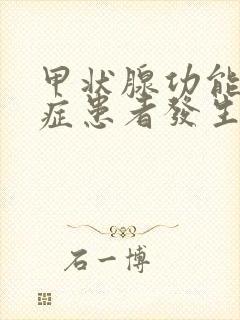 甲状腺功能
症患者發生
石一博